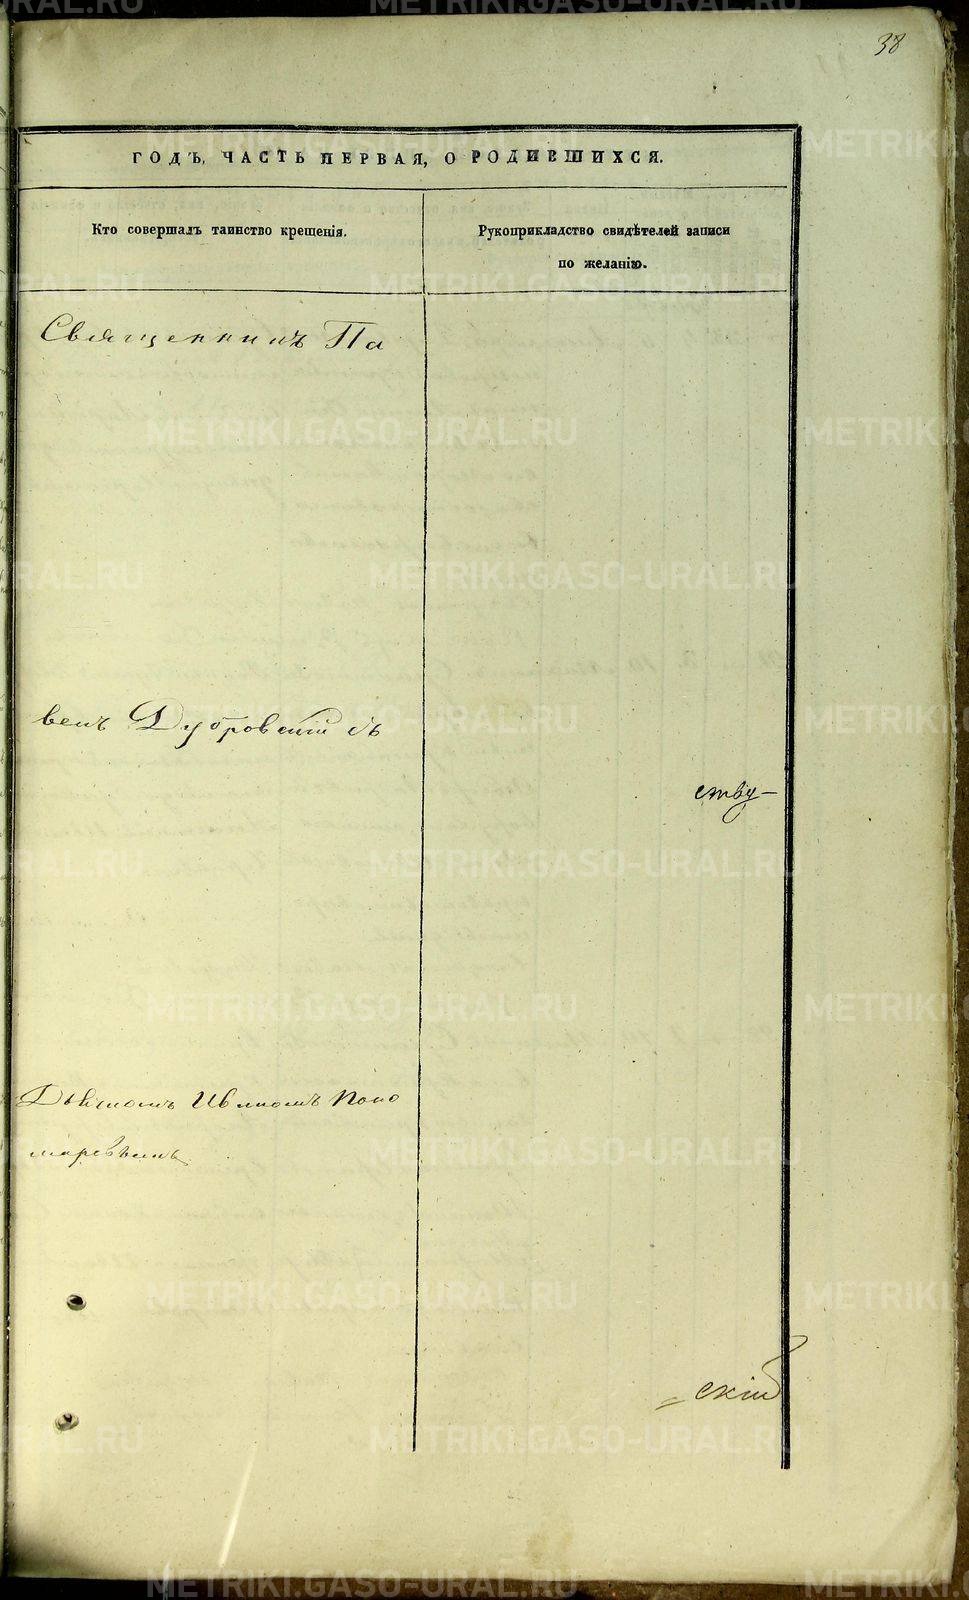 38
ГОДЪ, ЧАСТЬ ПЕРВАЯ, О РОДИВШИХСЯ.
Кто совершалъ таинство крещенія.
Рукоприкладство свидѣтелей записи
по желанію.
Священникъ Па
велъ Дубровскій съ
ству-
Дьячкомъ Иваномъ Поно
маревымъ
= скій
METRIKI.GASO-URAL.RU